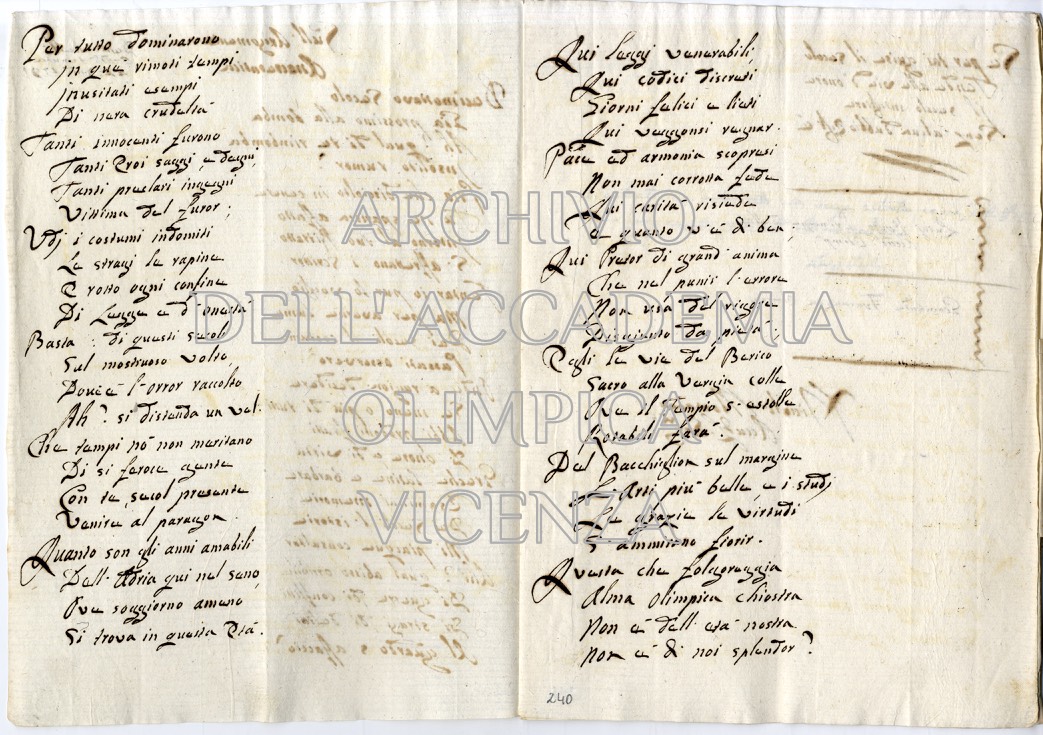 Per tutto dominarono
In que' rimoti tempi
Inusitati esempi
Di nera crudeltà
Tanti innocenti furono
Tanti Eroi saggi, e degni,
Tanti preclari ingegni
Vittima del furor;
Udj i costumi indomiti
Le stragi le rapine
E rotto ogni confine
Di Legge e d'onestà
Basta: di questi secoli
Sul mostruoso volto,
Dov'è l'orror raccolto
Ah? si distenda un vel.
Che tempi nò non meritano
Di si feroce gente
Con te, secol presente
Venire al paragon.
Quanto son gli anni amabili
Dell'Adria qui nel seno,
Ove soggiorno ameno
Si trova in questa Età.
Qui Leggi venerabili,
Qui codici discreti
Giorni felici e lieti
Qui veggonsi regnar.
Pace ed armonia scopresi
Non mai corrotta fede
Qui carità risiede
E quanto v'è di ben;
Qui Pretor di grand'anima
Che nel punir l'errore
Non usa del rigore
Disgiunto da pietà;
Egli le vie del Berico
Sacro alla Vergin colle
Ove il Tempio s'estolle
Rotabili farà.
Del Bacchiglion sul margine
L'Arti più belle, e i studj
Le grazie le virtudi
S'ammirano fiorir.
Questa che folgoreggia
Alma Olimpica chiostra
Non è dell'età nostra
Non è di noi splendor?
240
ARCHIVIO
DELL'ACCADEMIA
OLIMPICA
VICENZA